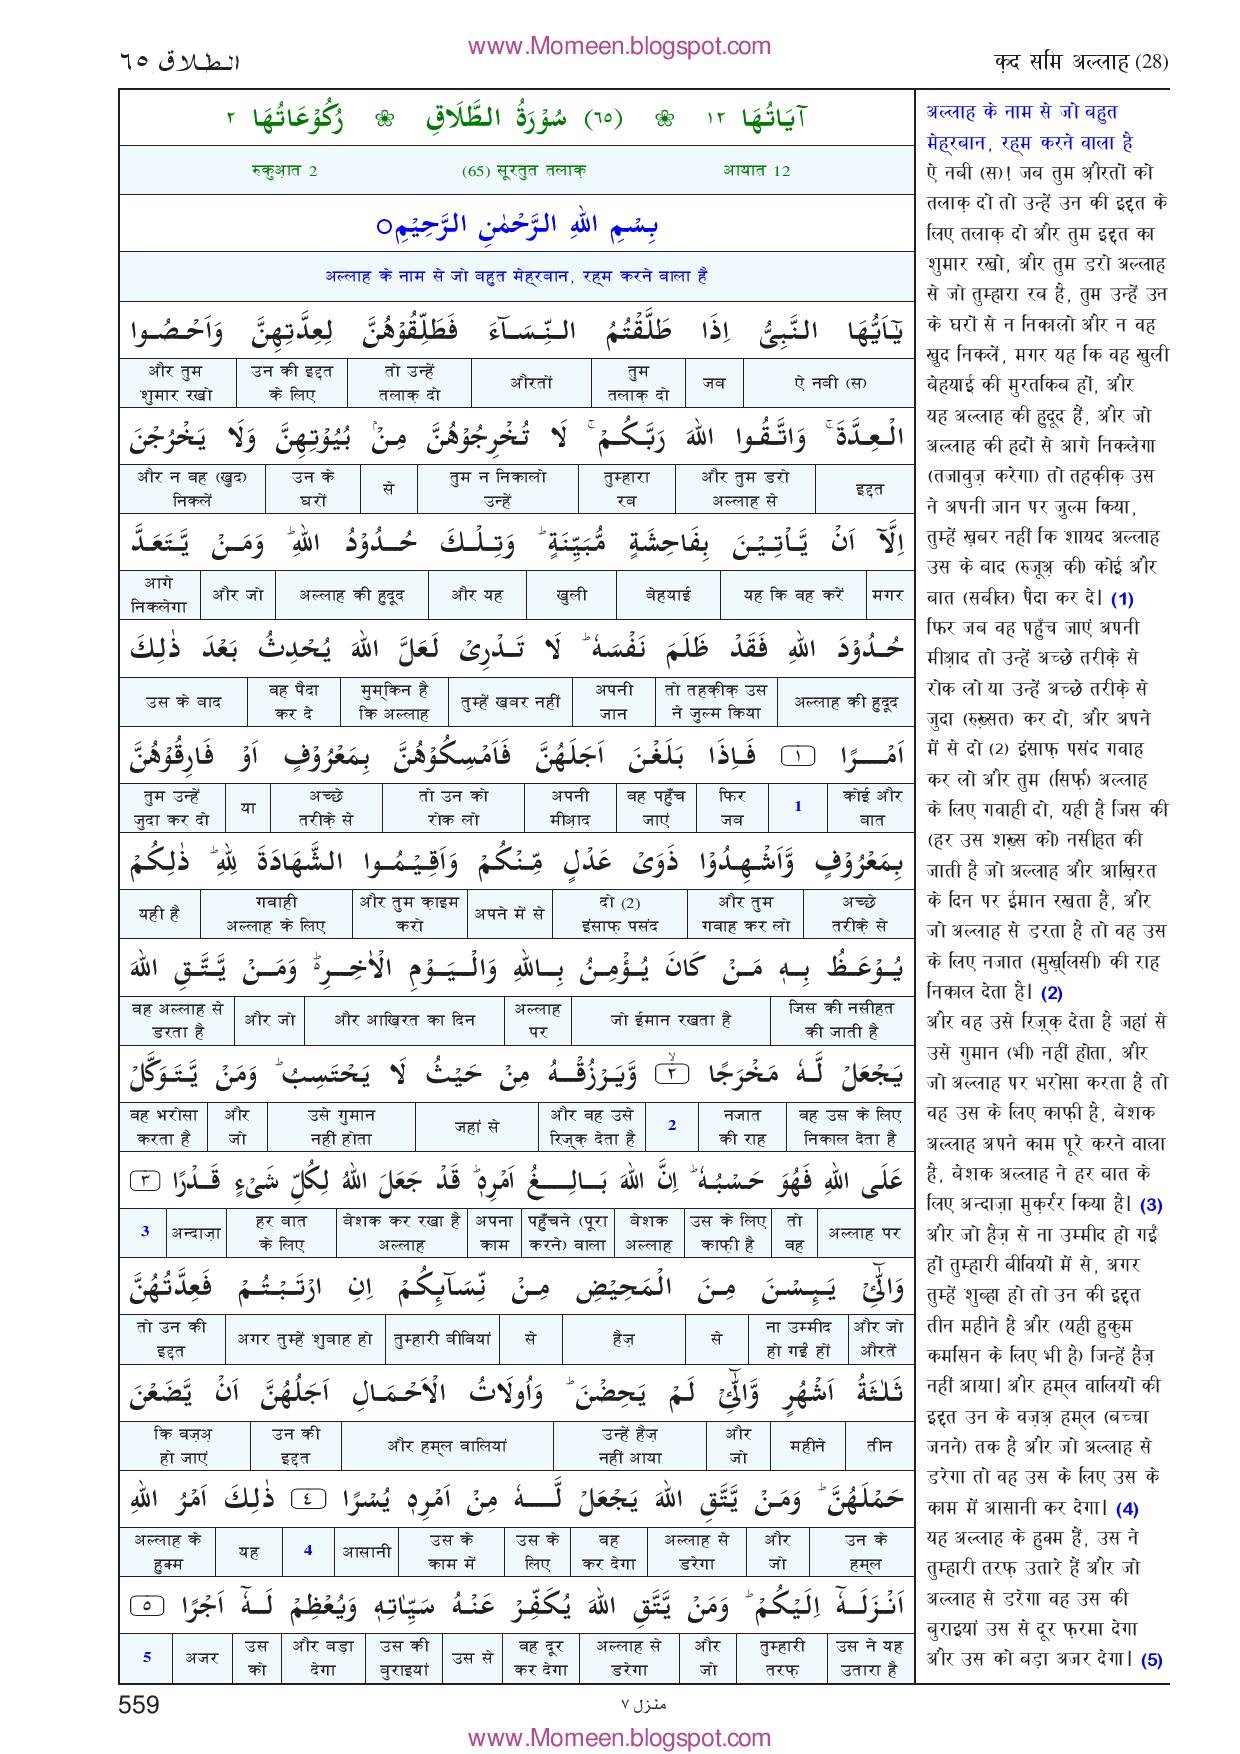 www.Momeen.blogspot.com
الـطـلاق ٦٥
क़द समि अल्लाह (28)
اٰيَاتُهَا ١٢ ❀ (٦٥) سُوْرَةُ الطَّلَاقِ ❀ رُكُوْعَاتُهَا ٢
आयात 12 (65) सूरतुत तलाक़ रुकुआ़त 2
بِسْمِ اللّٰهِ الرَّحْمٰنِ الرَّحِيْمِ ○
अल्लाह के नाम से जो बहुत मेह्रबान, रह्म करने वाला है
يٰٓاَيُّهَا النَّبِيُّ اِذَا طَلَّقْتُمُ النِّسَآءَ فَطَلِّقُوْهُنَّ لِعِدَّتِهِنَّ وَاَحْصُوا
ऐ नबी (स) जब तुम तलाक़ दो औरतों तो उन्हें तलाक़ दो उन की इद्दत के लिए और तुम शुमार रखो
الْعِدَّةَ ۚ وَاتَّقُوا اللّٰهَ رَبَّكُمْ ۚ لَا تُخْرِجُوْهُنَّ مِنْۢ بُيُوْتِهِنَّ وَلَا يَخْرُجْنَ
इद्दत और तुम डरो अल्लाह से तुम्हारा रब तुम न निकालो उन्हें से उन के घरों और न वह (खुद) निकलें
اِلَّآ اَنْ يَّاْتِيْنَ بِفَاحِشَةٍ مُّبَيِّنَةٍ ؕ وَتِلْكَ حُدُوْدُ اللّٰهِ ؕ وَمَنْ يَّتَعَدَّ
मगर यह कि वह करें बेहयाई खुली और यह अल्लाह की हुदूद और जो आगे निकलेगा
حُدُوْدَ اللّٰهِ فَقَدْ ظَلَمَ نَفْسَهٗ ؕ لَا تَدْرِىْ لَعَلَّ اللّٰهَ يُحْدِثُ بَعْدَ ذٰلِكَ
अल्लाह की हुदूद तो तह्क़ीक़ उस ने जुल्म किया अपनी जान तुम्हें ख़बर नहीं मुम्किन है कि अल्लाह वह पैदा कर दे उस के बाद
اَمْرًا ١ فَاِذَا بَلَغْنَ اَجَلَهُنَّ فَاَمْسِكُوْهُنَّ بِمَعْرُوْفٍ اَوْ فَارِقُوْهُنَّ
कोई और बात 1 फिर जब वह पहुँच जाएं अपनी मीआ़द तो उन को रोक लो अच्छे तरीक़े से या तुम उन्हें जुदा कर दो
بِمَعْرُوْفٍ وَّاَشْهِدُوْا ذَوَىْ عَدْلٍ مِّنْكُمْ وَاَقِيْمُوا الشَّهَادَةَ لِلّٰهِ ؕ ذٰلِكُمْ
अच्छे तरीक़े से और तुम गवाह कर लो दो (2) इंसाफ़ पसंद अपने में से और तुम क़ाइम करो गवाही अल्लाह के लिए यही है
يُوْعَظُ بِهٖ مَنْ كَانَ يُؤْمِنُ بِاللّٰهِ وَالْيَوْمِ الْاٰخِرِ ۬ؕ وَمَنْ يَّتَّقِ اللّٰهَ
जिस की नसीहत की जाती है जो ईमान रखता है अल्लाह पर और आख़िरत का दिन और जो वह अल्लाह से डरता है
يَجْعَلْ لَّهٗ مَخْرَجًا ۙ ٢ وَّيَرْزُقْهُ مِنْ حَيْثُ لَا يَحْتَسِبُ ؕ وَمَنْ يَّتَوَكَّلْ
वह उस के लिए निकाल देता है नजात की राह 2 और वह उसे रिज़्क़ देता है जहां से उसे गुमान नहीं होता और जो वह भरोसा करता है
عَلَى اللّٰهِ فَهُوَ حَسْبُهٗ ؕ اِنَّ اللّٰهَ بَالِغُ اَمْرِهٖ ؕ قَدْ جَعَلَ اللّٰهُ لِكُلِّ شَىْءٍ قَدْرًا ٣
अल्लाह पर तो वह उस के लिए काफ़ी है बेशक अल्लाह पहुँचने (पूरा करने) वाला अपना काम बेशक कर रखा है अल्लाह हर बात के लिए अन्दाज़ा 3
وَالّٰٓئِىْ يَئِسْنَ مِنَ الْمَحِيْضِ مِنْ نِّسَآئِكُمْ اِنِ ارْتَبْتُمْ فَعِدَّتُهُنَّ
और जो औरतें ना उम्मीद हो गईं हों से हैज़ से तुम्हारी बीवियां अगर तुम्हें शुबाह हो तो उन की इद्दत
ثَلٰثَةُ اَشْهُرٍ وَّالّٰٓئِىْ لَمْ يَحِضْنَ ؕ وَاُولَاتُ الْاَحْمَالِ اَجَلُهُنَّ اَنْ يَّضَعْنَ
तीन महीने और जो उन्हें हैज़ नहीं आया और हम्ल वालियां उन की इद्दत कि वज़अ़ हो जाएं
حَمْلَهُنَّ ؕ وَمَنْ يَّتَّقِ اللّٰهَ يَجْعَلْ لَّهٗ مِنْ اَمْرِهٖ يُسْرًا ٤ ذٰلِكَ اَمْرُ اللّٰهِ
उन के हम्ल और जो अल्लाह से डरेगा वह कर देगा उस के लिए उस के काम में आसानी 4 यह अल्लाह के हुक्म
اَنْزَلَهٗٓ اِلَيْكُمْ ؕ وَمَنْ يَّتَّقِ اللّٰهَ يُكَفِّرْ عَنْهُ سَيِّاٰتِهٖ وَيُعْظِمْ لَهٗٓ اَجْرًا ٥
उस ने यह उतारा है तुम्हारी तरफ़ और जो अल्लाह से डरेगा वह दूर कर देगा उस से उस की बुराइयां और बड़ा देगा उस को अजर 5
अल्लाह के नाम से जो बहुत
मेह्रबान, रह्म करने वाला है
ऐ नबी (स)! जब तुम औ़रतों को
तलाक़ दो तो उन्हें उन की इद्दत के
लिए तलाक़ दो और तुम इद्दत का
शुमार रखो, और तुम डरो अल्लाह
से जो तुम्हारा रब है, तुम उन्हें उन
के घरों से न निकालो और न वह
खुद निकलें, मगर यह कि वह खुली
बेहयाई की मुरतकिब हों, और
यह अल्लाह की हुदूद हैं, और जो
अल्लाह की हदों से आगे निकलेगा
(तजावुज़ करेगा) तो तह्क़ीक़ उस
ने अपनी जान पर जुल्म किया,
तुम्हें ख़बर नहीं कि शायद अल्लाह
उस के बाद (रुजूअ़ की) कोई और
बात (सबील) पैदा कर दे। (1)
फिर जब वह पहुँच जाएं अपनी
मीआ़द तो उन्हें अच्छे तरीक़े से
रोक लो या उन्हें अच्छे तरीक़े से
जुदा (रुख़्सत) कर दो, और अपने
में से दो (2) इंसाफ़ पसंद गवाह
कर लो और तुम (सिर्फ़) अल्लाह
के लिए गवाही दो, यही है जिस की
(हर उस शख़्स को) नसीहत की
जाती है जो अल्लाह और आख़िरत
के दिन पर ईमान रखता है, और
जो अल्लाह से डरता है तो वह उस
के लिए नजात (मुख़्लिसी) की राह
निकाल देता है। (2)
और वह उसे रिज़्क़ देता है जहां से
उसे गुमान (भी) नहीं होता, और
जो अल्लाह पर भरोसा करता है तो
वह उस के लिए काफ़ी है, बेशक
अल्लाह अपने काम पूरे करने वाला
है, बेशक अल्लाह ने हर बात के
लिए अन्दाज़ा मुक़र्रर किया है। (3)
और जो हैज़ से ना उम्मीद हो गईं
हों तुम्हारी बीवियों में से, अगर
तुम्हें शुब्हा हो तो उन की इद्दत
तीन महीने है और (यही हुक्म
कमसिन के लिए भी है) जिन्हें हैज़
नहीं आया। और हम्ल वालियों की
इद्दत उन के वज़अ़ हम्ल (बच्चा
जनने) तक है और जो अल्लाह से
डरेगा तो वह उस के लिए उस के
काम में आसानी कर देगा। (4)
यह अल्लाह के हुक्म हैं, उस ने
तुम्हारी तरफ़ उतारे हैं और जो
अल्लाह से डरेगा वह उस की
बुराइयां उस से दूर फ़रमा देगा
और उस को बड़ा अजर देगा। (5)
559
منزل ٧
www.Momeen.blogspot.com